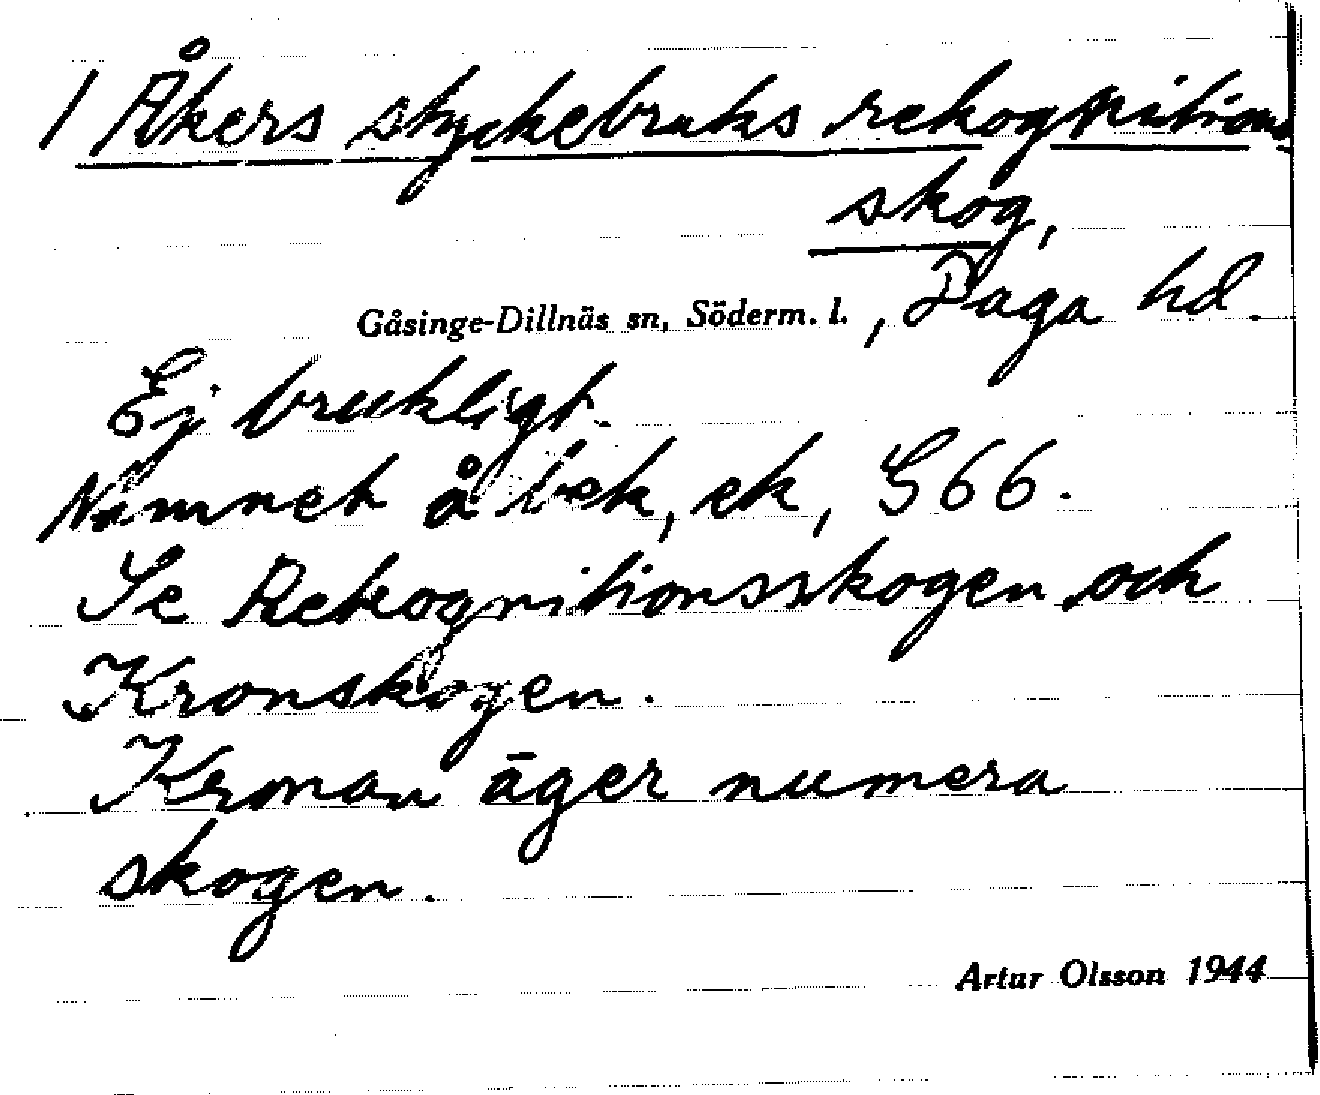 / Åkers styckebruks rekognitions
skog,
Gåsinge-Dillnäs sn, Söderm. l. , Daga hd.
Ej brukligt.
Namnet å bek, ek, S 66.
Se Rekognitionsskogen och
Kronskogen.
Kronan äger numera
skogen.
Artur Olsson 1944